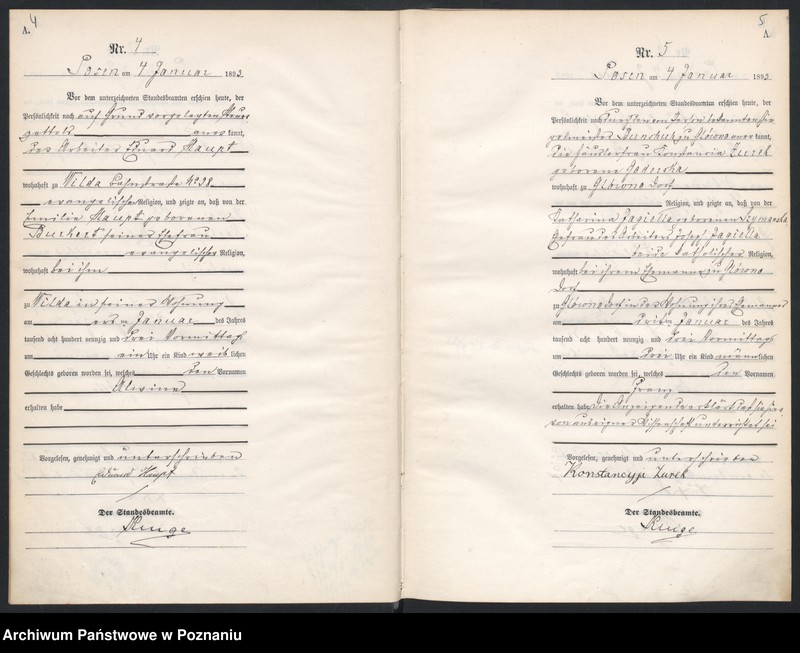 4
A.
Nr. 4
Posen am 4 Januar 1893
Vor dem unterzeichneten Standesbeamten erschien heute, der
Persönlichkeit nach auf Grund vorgelegten
kannt,
des Arbeiter Eduard Haupt
wohnhaft zu Wilda Bahnstraße No 38
evangelischer Religion, und zeigte an, daß von der
Emilie Haupt geborenen
Burkert seiner Ehefrau
evangelischer Religion,
wohnhaft bei ihm
zu Wilda in seiner Wohnung
am ersten Januar des Jahres
tausend acht hundert neunzig und drei Vormittags
um ein Uhr ein Kind weiblichen
Geschlechts geboren worden sei, welches den Vornamen
Alwine
erhalten habe
Vorgelesen, genehmigt und unterschrieben
Eduard Haupt
Der Standesbeamte.
5
A
Nr. 5
Posen am 4 Januar 1893
Vor dem unterzeichneten Standesbeamten erschien heute, der
Persönlichkeit nach durch den von Person bekannten
zu Glowno anerkannt,
die Häuslerfrau Konstancia Zurek
geborene
wohnhaft zu Glowno Dorf
Religion, und zeigte an, daß von der
Katharina Jagiella geborenen
Ehefrau des Arbeiters Josef Jagiella
beide katholischer Religion,
wohnhaft bei ihrem Ehemann zu Glowno
Dorf
zu Glowno Dorf in der Wohnung ihres Ehemannes
am dritten Januar des Jahres
tausend acht hundert neunzig und drei Vormittags
um drei Uhr ein Kind männlichen
Geschlechts geboren worden sei, welches den Vornamen
Franz
erhalten habe. Die Anzeigende erklärt, daß sie
von aus eigener Wissenschaft unterrichtet sei
Vorgelesen, genehmigt und unterschrieben
Konstancyja Zurek
Der Standesbeamte.
Archiwum Państwowe w Poznaniu